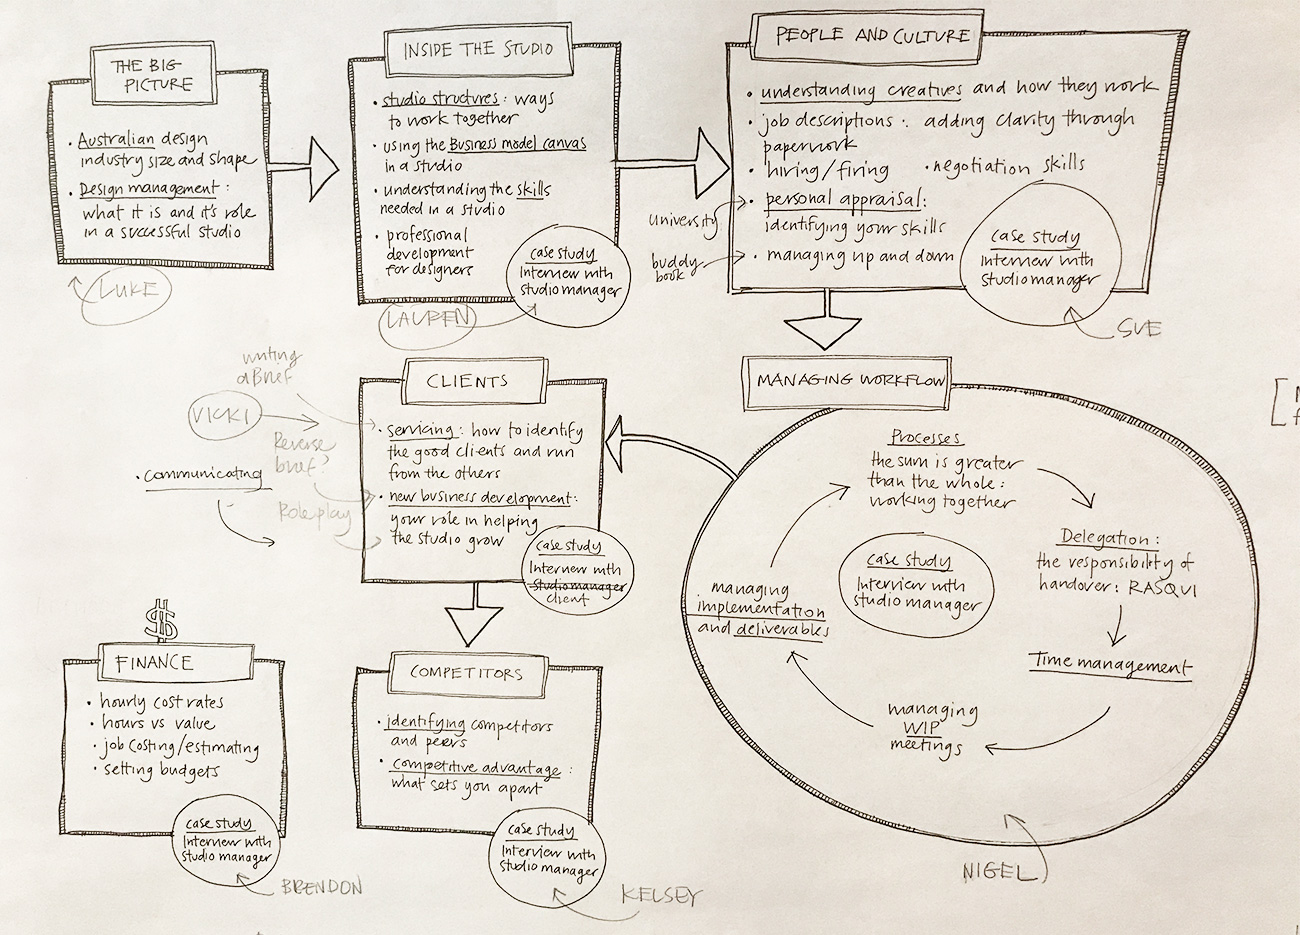 THE BIG-
PICTURE
• Australian design
industry size and shape
• Design management:
what it is and it's role
in a successful studio
LUKE
INSIDE THE STUDIO
• studio structures: ways
to work together
• using the Business model canvas
in a studio
• understanding the skills
needed in a studio
• professional
development
for designers
case study
Interview with
studio manager
LAUREN
PEOPLE AND CULTURE
• understanding creatives and how they work
• job descriptions: adding clarity through
paperwork
• hiring/firing • negotiation skills
• personal appraisal:
identifying your skills
• managing up and down
university
buddy
book
case study
Interview with
studio manager
SUE
MANAGING WORKFLOW
Processes
the sum is greater
than the whole:
working together
Delegation:
the responsibility of
handover: RASQUI
Time management
managing
WIP
meetings
managing
implementation
and deliverables
case study
Interview with
studio manager
NIGEL
CLIENTS
• servicing: how to identify
the good clients and run
from the others
• new business development:
your role in helping
the studio grow
case study
Interview with
studio manager
client
writing
a Brief
VICKI
Reverse
brief?
• communicating
Role play
COMPETITORS
• identifying competitors
and peers
• competitive advantage:
what sets you apart
case study
Interview with
studio manager
KELSEY
$
FINANCE
• hourly cost rates
• hours vs value
• job costing/estimating
• setting budgets
case study
Interview with
studio manager
BRENDON